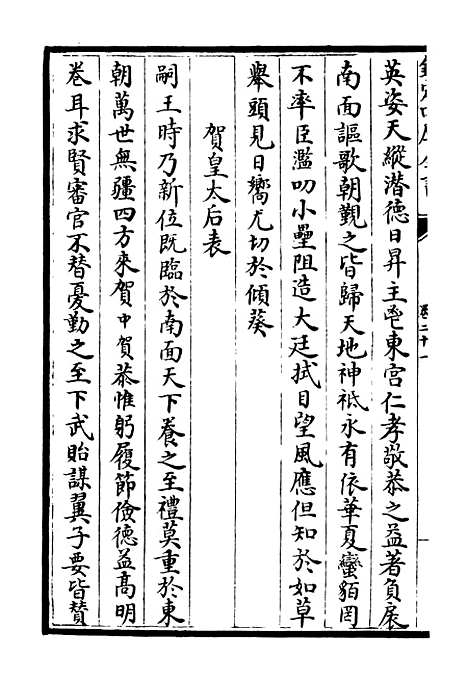 英姿天縱潛德日昇主鬯東宮仁孝敬恭之益著負扆
南面謳歌朝覲之皆歸天地神祗永有依華夏蠻貊罔
不率臣濫叨小壘阻造大廷拭目望風應但知於如草
舉頭見日嚮尤切於傾葵
賀皇太后表
嗣王時乃新位既臨於南面天下養之至禮莫重於東
朝萬世無疆四方來賀中賀恭惟躬履節儉德益高明
卷耳求賢審官不替憂勤之至下武貽謀翼子要皆贊